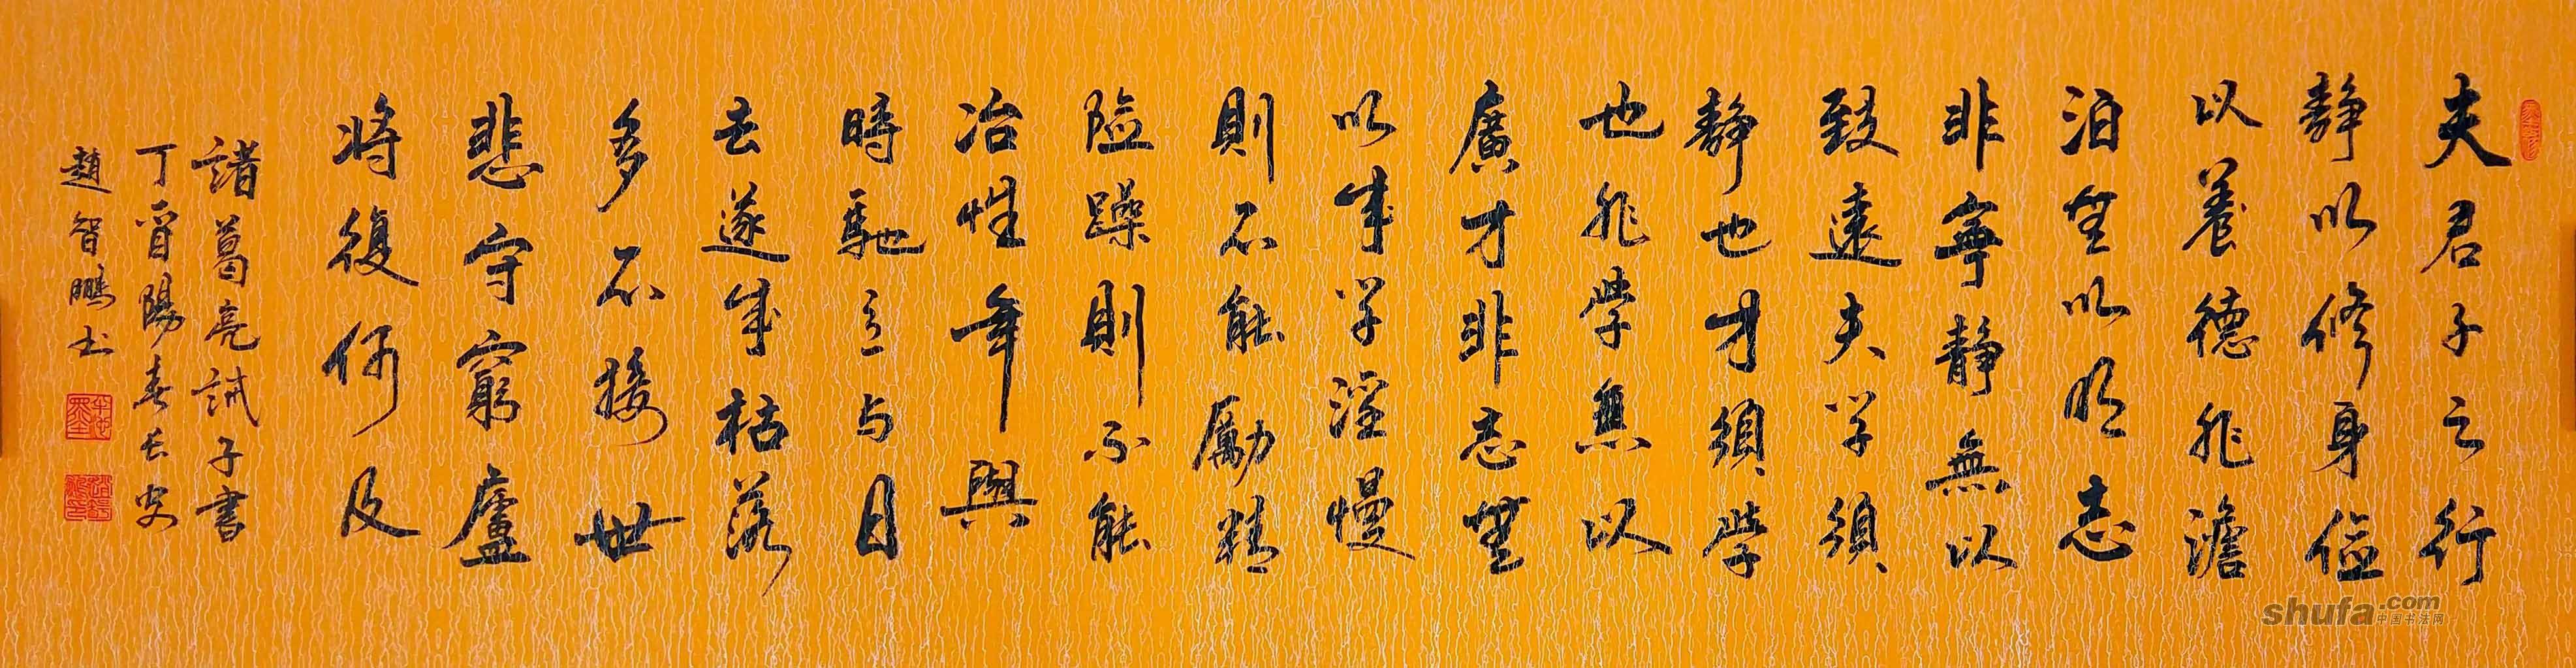 夫君子之行
静以修身俭
以養德非澹
泊無以明志
非寧静無以
致遠夫学須
静也才須學
也非學無以
廣才非志無
以成学淫慢
則不能勵精
险躁則不能
冶性年與
時馳意与日
去遂成枯落
多不接世
悲守窮廬
将復何及
諸葛亮誡子書
丁酉陽春長安
趙智鵬书
shufa.com
中国书法网